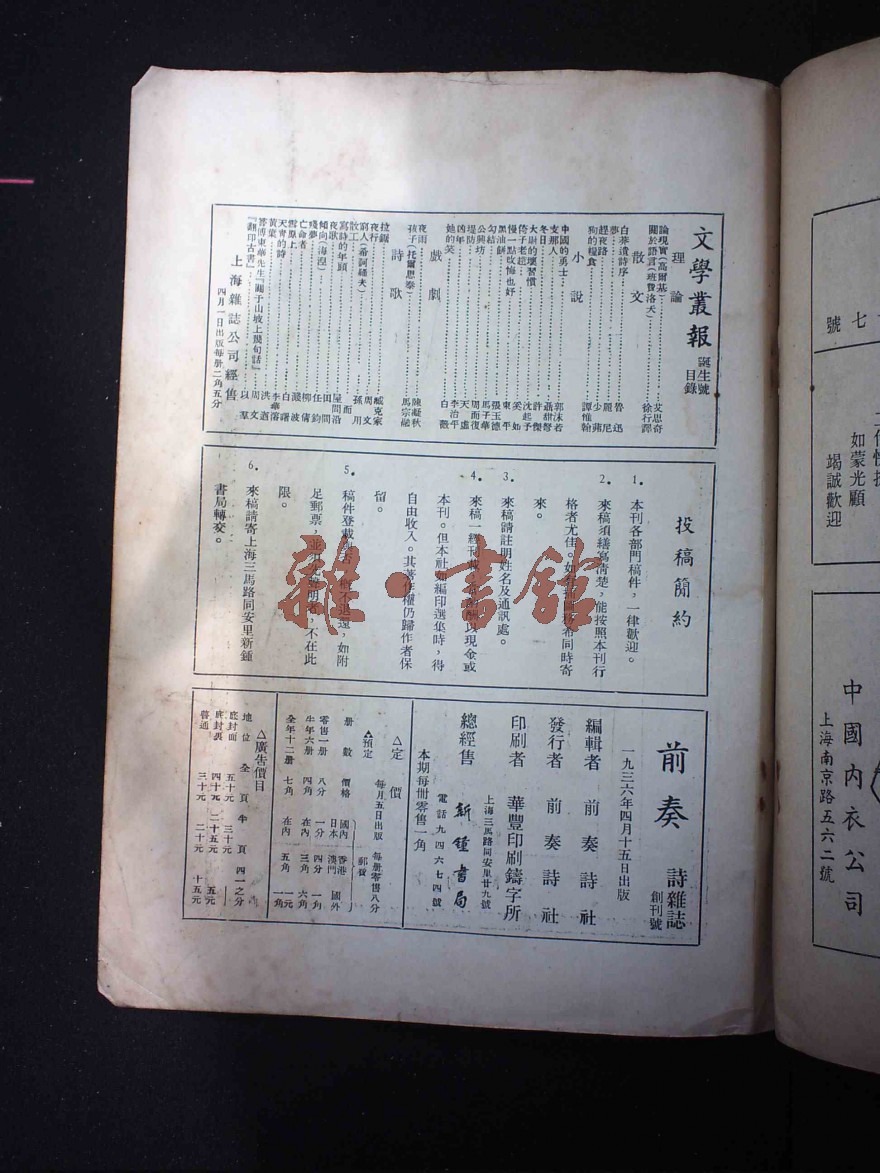 文學叢報
誕生號
目錄
理論
論現實(高爾基)
艾思奇
關於語言(班費洛夫)
徐行譯
散文
白莽遺詩序
魯迅
夢
麗尼
趕夜路
少蘋
狗的糧食
譚惟翰
小說
中國的勇士
郭沫若
支那人
聶紺弩
冬日
許傑
大尉的壞習慣
沈起予
倚于老趙
奚如
慢一點改悔也好
東平
黑油餅
張玉德
勾結
馬子華
公興坊
周而復
堤防
天虛
凶年
李治平
她的笑
白薇
戲劇
夜雨
陳凝秋
孩子(托爾思泰)
馬宗融
詩歌
拉鐵
臧克家
夜行
周文
窮人(希訶綏夫)
孫用
散工
而用
寫詩的年頭
屋問沿
夜歌
田間
傾向(海涅)
任鈞
殘夢
柳倩
亡命者
濺波
雪原上
白曙
天青的詩
李華
黃葉
洪遒
答傅東華先生『關于山坡上幾句話』
周文
『翻印古書』
以羣
上海雜誌公司經售
四月一日出版每冊二角五分
投稿簡約
1. 本刊各部門稿件，一律歡迎。
2. 來稿須繕寫清楚，能按照本刊行
格者尤佳。如有插圖務希同時寄
來。
3. 來稿請註明姓名及通訊處。
4. 來稿一經刊載，當酌酬以現金或
本刊。但本社如編印選集時，得
自由收入。其著作權仍歸作者保
留。
5. 稿件登載與否，概不退還，如附
足郵票，並預先聲明者，不在此
限。
6. 來稿請寄上海三馬路同安里新鍾
書局轉交。
前奏
詩雜誌
創刊號
一九三六年四月十五日出版
編輯者 前奏詩社
發行者 前奏詩社
印刷者 華豐印刷鑄字所
上海三馬路同安里廿九號
總經售 新鍾書局
電話九四六七四號
本期每冊零售一角
△定價
每月五日出版 每冊零售八分
△預定
郵費
冊數 價格 國內日本 香港澳門 國外
零售一冊 八分 一分 四分 一角
半年六冊 四角 在內 三角 六角
全年十二冊 七角 在內 五角 一元一角
△廣告價目
地位 全頁 半頁 四一之分
底封面 五十元 三十元
底封裏 四十元 二十五元 五元
普通 三十元 二十元 十五元
七號
如蒙光顧
竭誠歡迎
中國內衣公司
上海南京路五六二號
雜·書館